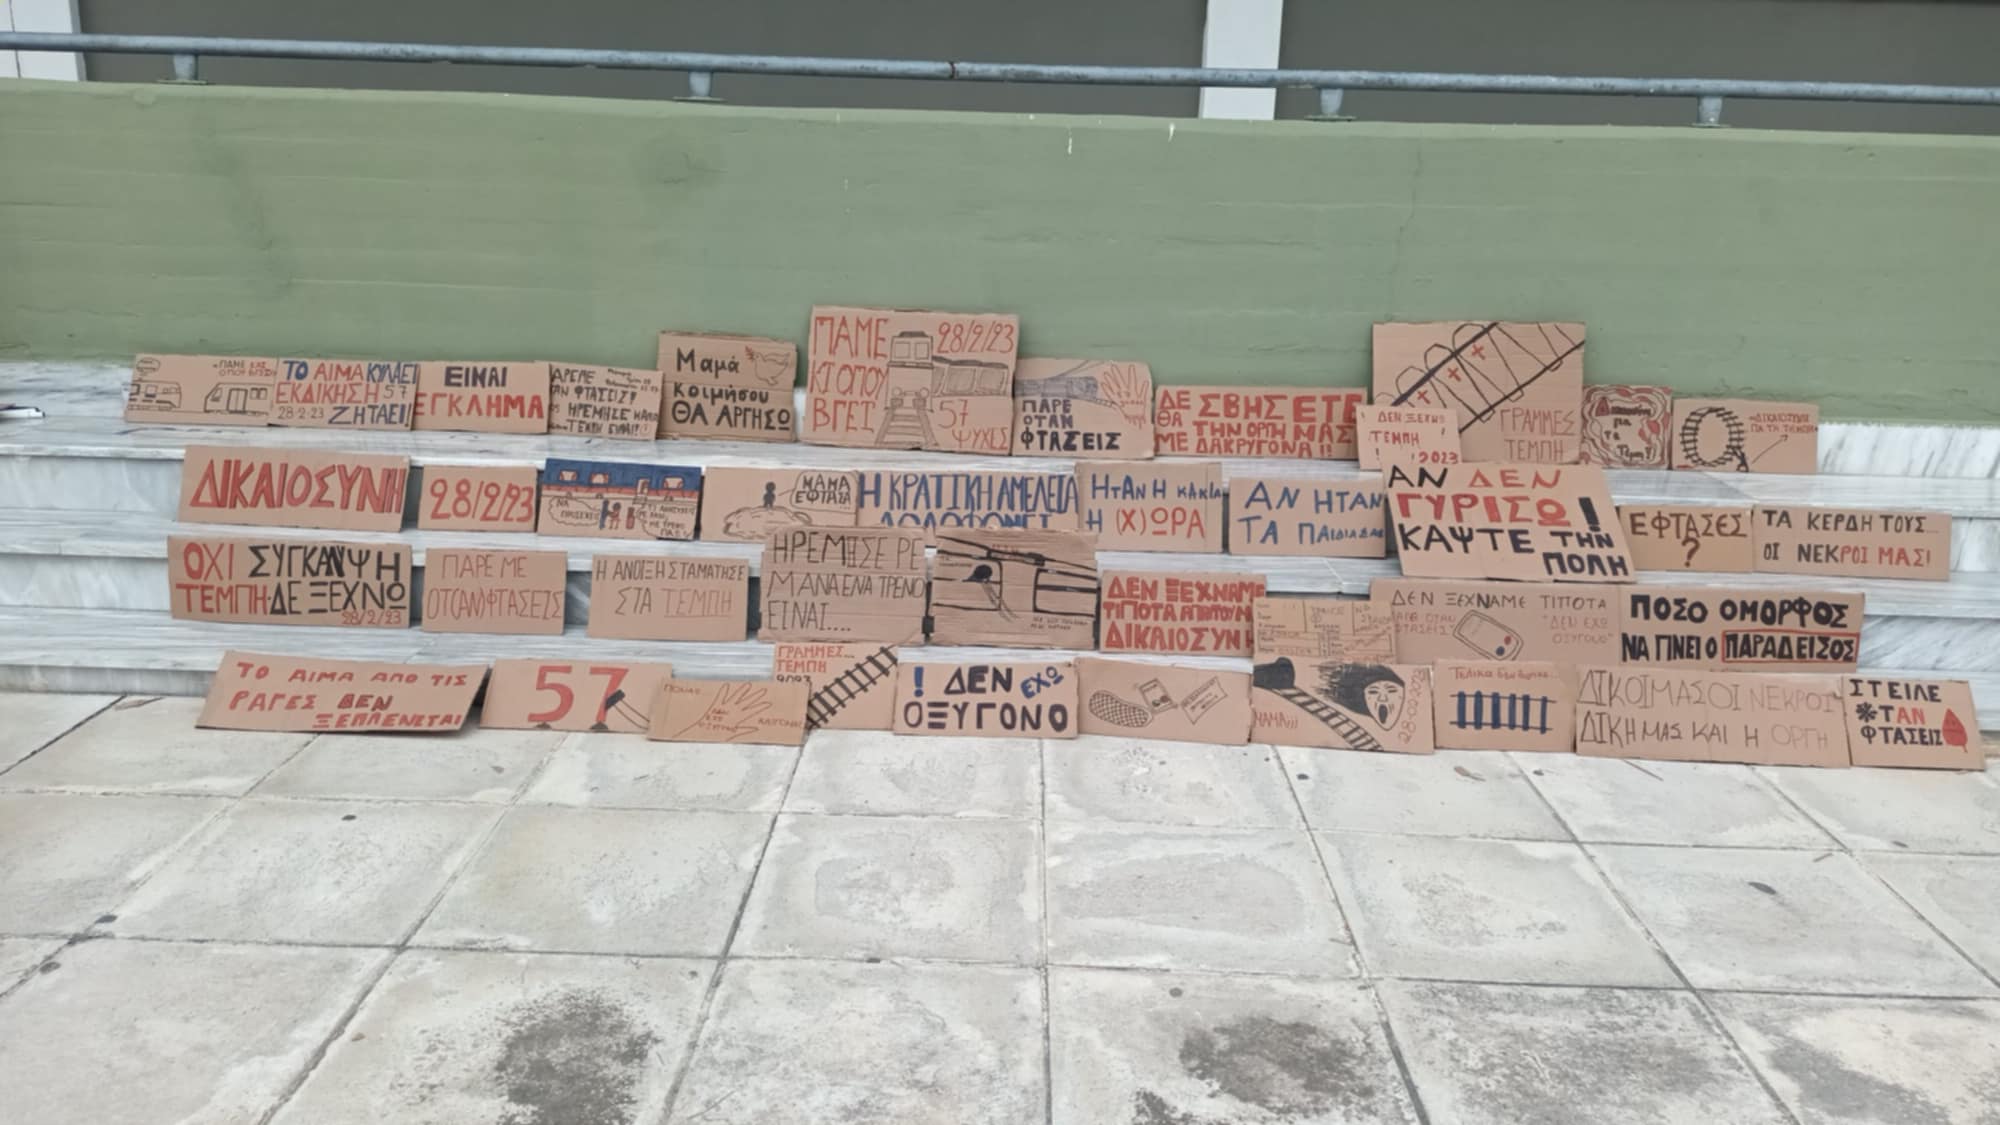 ΠΑΜΕ
ΤΟ ΑΙΜΑ ΚΥΛΑΕΙ
ΕΚΔΙΚΗΣΗ 57
28-2-23 ΖΗΤΑΕΙ!
ΕΙΝΑΙ
ΕΓΚΛΗΜΑ
ΦΤΑΣΕΙΣ?
Μαμά
κοιμήσου
ΘΑ ΑΡΓΗΣΩ
ΠΑΜΕ
ΚΙ ΟΠΟΥ
ΒΓΕΙ
28/2/23
57
ΨΥΧΕΣ
ΠΑΡΕ
ΟΤΑΝ
ΦΤΑΣΕΙΣ
ΔΕ ΣΒΗΣΕΤΕ
ΘΑ ΤΗΝ ΟΡΓΗ ΜΑΣ
ΜΕ ΔΑΚΡΥΓΟΝΑ!!
ΔΕΝ ΞΕΧΝΩ
ΤΕΜΠΗ
2023
ΓΡΑΜΜΕΣ
ΤΕΜΠΗ
Δικαιοσύνη
για
τα
Τέμπη!
-ΔΙΚΑΙΟΣΥΝΗ
ΓΙΑ ΤΑ ΤΕΜΠΗ
ΔΙΚΑΙΟΣΥΝΗ
28/2/23
ΜΑΜΑ
ΕΦΤΑΣΑ
Η ΚΡΑΤΙΚΗ ΑΜΕΛΕΙΑ
ΔΟΛΟΦΟΝΕΙ
ΗΤΑΝ Η ΚΑΚΙΑ
Η (Χ)ΩΡΑ
ΑΝ ΗΤΑΝ
ΤΑ ΠΑΙΔΙΑ ΣΑΣ
ΑΝ ΔΕΝ
ΓΥΡΙΣΩ!
ΚΑΨΤΕ ΤΗΝ
ΠΟΛΗ
ΕΦΤΑΣΕΣ
?
ΤΑ ΚΕΡΔΗ ΤΟΥΣ...
ΟΙ ΝΕΚΡΟΙ ΜΑΣ!
ΟΧΙ ΣΥΓΚΑΛΥΨΗ
ΤΕΜΠΗ-ΔΕ ΞΕΧΝΩ
28/2/23
ΠΑΡΕ ΜΕ
ΟΤ(ΑΝ)ΦΤΑΣΕΙΣ
Η ΑΝΟΙΞΗ ΣΤΑΜΑΤΗΣΕ
ΣΤΑ ΤΕΜΠΗ
ΗΡΕΜΗΣΕ ΡΕ
ΜΑΝΑ ΕΝΑ ΤΡΕΝΟ
ΕΙΝΑΙ....
ΔΕΝ ΞΕΧΝΑΜΕ
ΤΙΠΟΤΑ
ΔΙΚΑΙΟΣΥΝΗ
ΔΕΝ ΞΕΧΝΑΜΕ ΤΙΠΟΤΑ
"ΔΕΝ ΕΧΩ
ΟΞΥΓΟΝΟ"
ΠΟΣΟ ΟΜΟΡΦΟΣ
ΝΑ ΓΙΝΕΙ Ο ΠΑΡΑΔΕΙΣΟΣ
ΤΟ ΑΙΜΑ ΑΠΟ ΤΙΣ
ΡΑΓΕΣ ΔΕΝ
ΞΕΠΛΕΝΕΤΑΙ
57
ΓΡΑΜΜΕΣ...
ΤΕΜΠΗ
2023
! ΔΕΝ ΕΧΩ
ΟΞΥΓΟΝΟ
ΜΑΜΑ!!!
Τελικά δεν
ΔΙΚΟΙ ΜΑΣ ΟΙ ΝΕΚΡΟΙ
ΔΙΚΗ ΜΑΣ ΚΑΙ Η ΟΡΓΗ
ΣΤΕΙΛΕ
*ΤΑΝ
ΦΤΑΣΕΙΣ